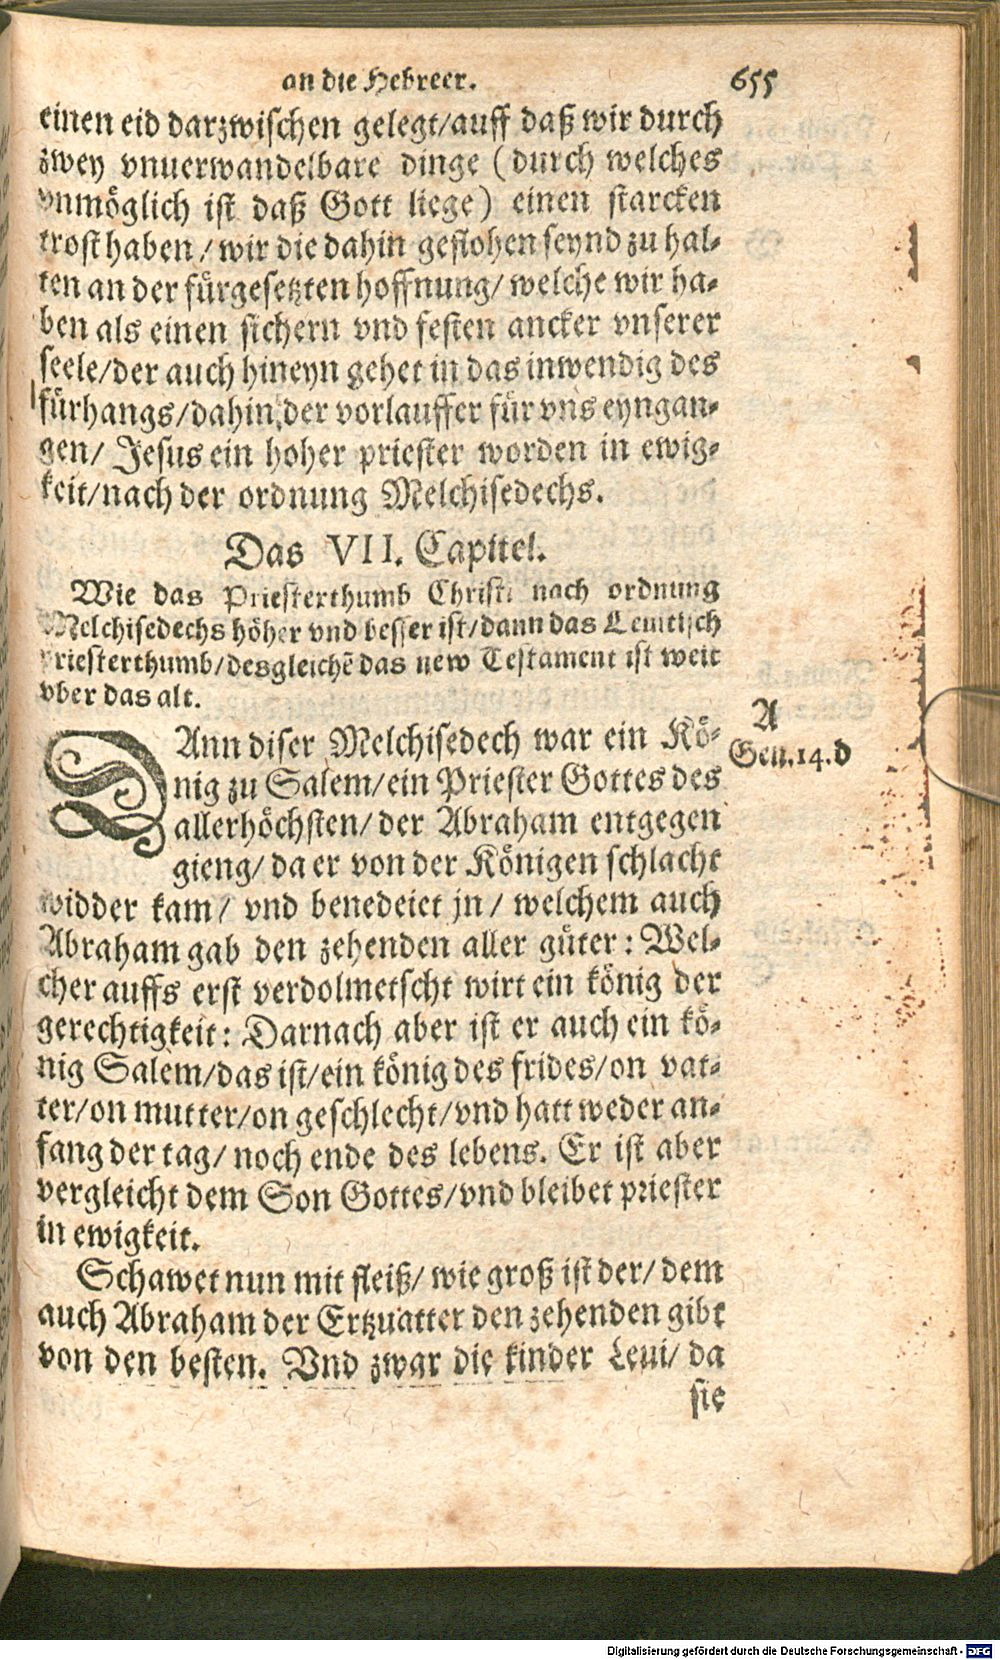 an die Hebreer. 655
einen eid darzwischen gelegt/auff daß wir durch
zwey vnuerwandelbare dinge (durch welches
vnmöglich ist daß Gott liege) einen starcken
trost haben / wir die dahin geflohen seynd zu hal-
ten an der fürgesetzten hoffnung/ welche wir ha-
ben als einen sichern vnd festen ancker vnserer
seele/der auch hineyn gehet in das inwendig des
fürhangs/dahin der vorlauffer für vns eyngan-
gen/ Jesus ein hoher priester worden in ewig-
keit/nach der ordnung Melchisedechs.
Das VII. Capitel.
Wie das Priesterthumb Christi nach ordnung
Melchisedechs höher vnd besser ist/dann das Leuitisch
priesterthumb/desgleichē das new Testament ist weit
vber das alt.
A
DAnn diser Melchisedech war ein Kö-
Gen.14.d
nig zu Salem/ein Priester Gottes des
allerhöchsten/ der Abraham entgegen
gieng/ da er von der Königen schlacht
widder kam/ vnd benedeiet jn/ welchem auch
Abraham gab den zehenden aller güter: Wel-
cher auffs erst verdolmetscht wirt ein könig der
gerechtigkeit: Darnach aber ist er auch ein kö-
nig Salem/das ist/ein könig des frides/on vat-
ter/on mutter/on geschlecht/vnd hatt weder an-
fang der tag/ noch ende des lebens. Er ist aber
vergleicht dem Son Gottes/vnd bleibet priester
in ewigkeit.
Schawet nun mit fleiß/ wie groß ist der/ dem
auch Abraham der Ertzuatter den zehenden gibt
von den besten. Vnd zwar die kinder Leui/ da
sie
Digitalisierung gefördert durch die Deutsche Forschungsgemeinschaft - DFG